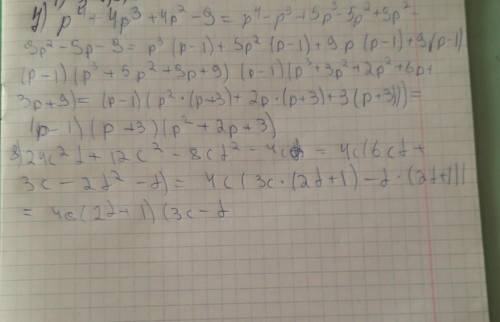 y) p⁴ + 4p³ + 4p² - 9 = p⁴ - p³ + 5p³ - 5p² + 9p² -
9p² - 5p - 9 = p³ (p-1) + 5p² (p-1) + 9p (p-1) + 9(p-1)
(p-1)(p³ + 5p² + 9p + 9) (p-1)(p³ + 3p² + 2p² + 6p +
3p + 9) = (p-1)(p² · (p+3) + 2p · (p+3) + 3(p+3)) =
(p-1)(p+3)(p² + 2p + 3)
24c²d + 12c² - 8cd² - 4cd = 4c(6cd +
3c - 2d² - d) = 4c(3c · (2d+1) - d · (2d+1))
= 4c(2d+1)(3c-d